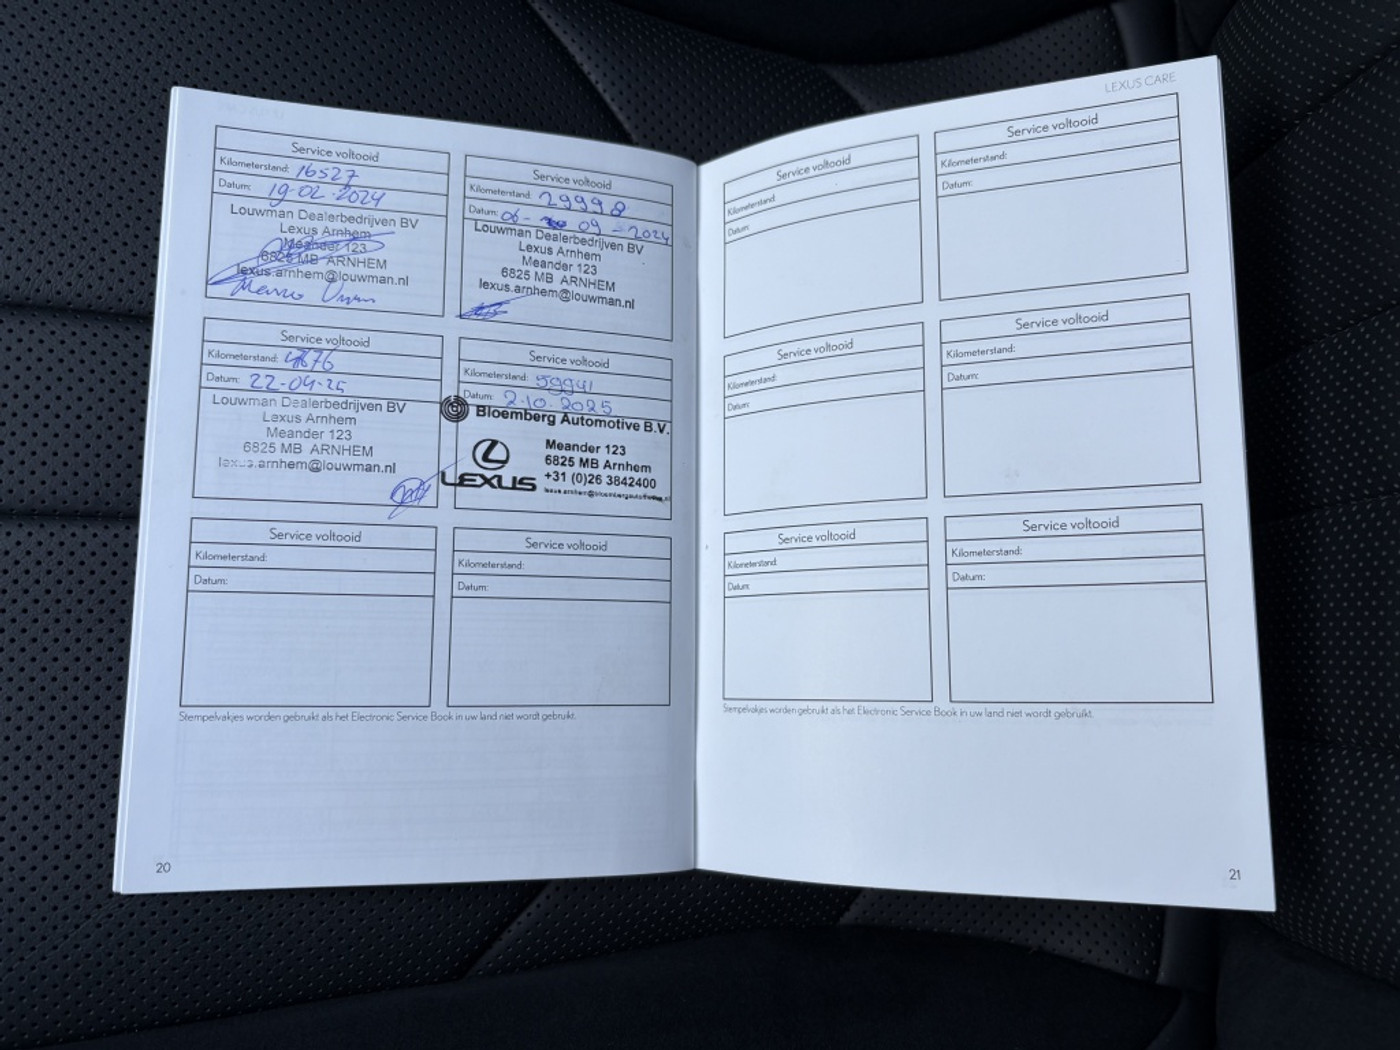 LEXUS CARE
Service voltooid
Kilometerstand: 16527
Datum: 19-02-2024
Louwman Dealerbedrijven BV
Lexus Arnhem
Meander 123
6825 MB ARNHEM
lexus.arnhem@louwman.nl
Service voltooid
Kilometerstand: 29998
Datum: 06- 09-2024
Louwman Dealerbedrijven BV
Lexus Arnhem
Meander 123
6825 MB ARNHEM
lexus.arnhem@louwman.nl
Service voltooid
Kilometerstand:
Datum: 22-04-25
Louwman Dealerbedrijven BV
Lexus Arnhem
Meander 123
6825 MB ARNHEM
lexus.arnhem@louwman.nl
Service voltooid
Kilometerstand: 59941
Datum: 2-10-2025
Bloemberg Automotive B.V.
LEXUS
Meander 123
6825 MB Arnhem
+31 (0)26 3842400
Service voltooid
Kilometerstand:
Datum:
Service voltooid
Kilometerstand:
Datum:
Stempelvakjes worden gebruikt als het Electronic Service Book in uw land niet wordt gebruikt.
20
Service voltooid
Kilometerstand:
Datum:
Service voltooid
Kilometerstand:
Datum:
Service voltooid
Kilometerstand:
Datum:
Service voltooid
Kilometerstand:
Datum:
Service voltooid
Kilometerstand:
Datum:
Service voltooid
Kilometerstand:
Datum:
Stempelvakjes worden gebruikt als het Electronic Service Book in uw land niet wordt gebruikt.
21